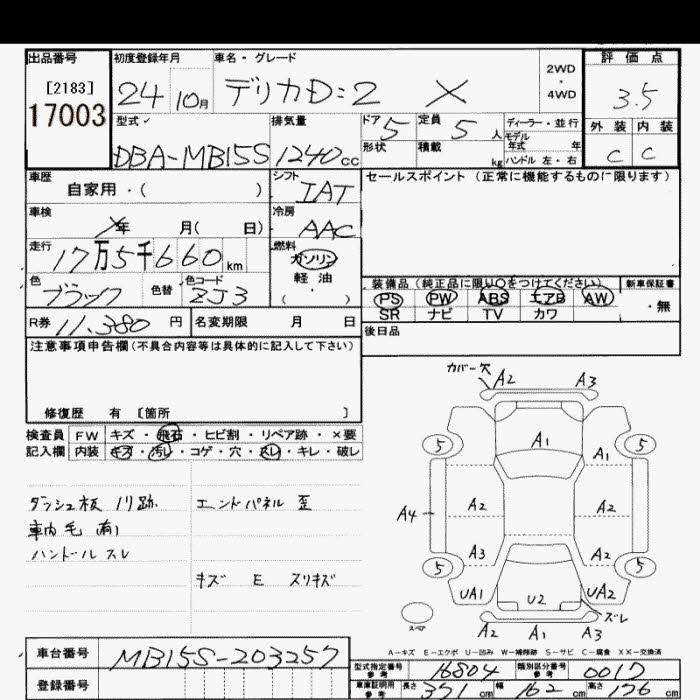 出品番号 初度登録年月 車名・グレード 2WD・4WD 評価点
[2183] 17003 24 10月 デリカD:2 X 3.5
型式 排気量 ドア 5 定員 5人 ディーラー・並行 外装 内装
モデル年式 年
形状 積載 kg ハンドル 左・右
DBA-MB15S 1240cc C C
車歴 自家用・( ) シフト IAT セールスポイント (正常に機能するものに限ります)
車検 年 月( 日) 冷房 AAC
走行 17万5千660km 燃料 ガソリン 軽油 ( ・ )
色 ブラック 色替 色コード ZJ3
装備品 (純正品に限り○をつけてください) 新車保証書
PS PW ABS エアB AW ・無
SR ナビ TV カワ
R券 11,380円 名変期限 月 日 後日品
注意事項申告欄(不具合内容等は具体的に記入して下さい)
修復歴 有 [箇所 ]
検査員 FW キズ・飛石・ヒビ割・リペア跡・×要
記入欄 内装 キズ・汚レ・コゲ・穴・スレ・キレ・破レ
ダッシュ板 ノリ跡
車内毛 有)
ハンドル スレ
エンドパネル 歪
キズ E スリキズ
カバー欠 A2 A3
5 A1 A1 5
A4 A2 A2
A3 A2
5 5
UA1 U2 UA2
ズレ
スペア
A2 A1 A3
A-キズ E-エクボ U-凹み W-補修跡 S-サビ C-腐食 XX-交換済
車台番号 MB15S-203257
登録番号
型式指定番号 参考 16804 類別区分番号 参考 0017
車庫証明用 参考 長さ 371cm 幅 162cm 高さ 176cm